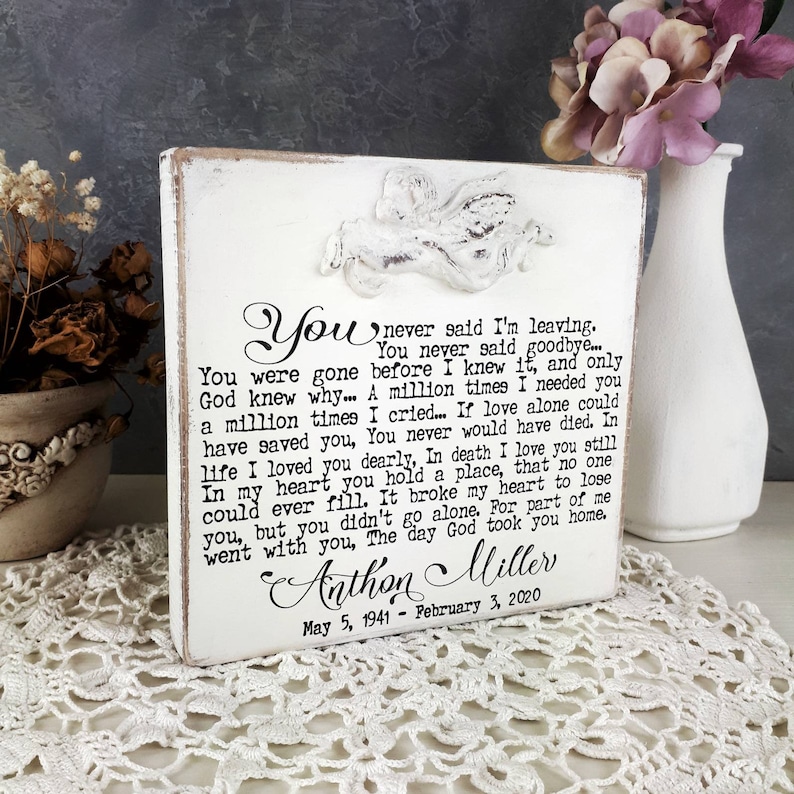 You never said I'm leaving.
You never said goodbye...
You were gone before I knew it, and only
God knew why... A million times I needed you
a million times I cried... If love alone could
have saved you, You never would have died. In
life I loved you dearly, In death I love you still
In my heart you hold a place, that no one
could ever fill. It broke my heart to lose
you, but you didn't go alone. For part of me
went with you, The day God took you home.
Anthon Miller
May 5, 1941 - February 3, 2020